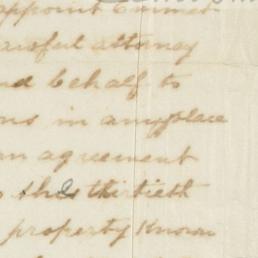 appoint Emmet
lawful attorney
nd behalf to
ons in any place
an agreement
this thirtieth
property known